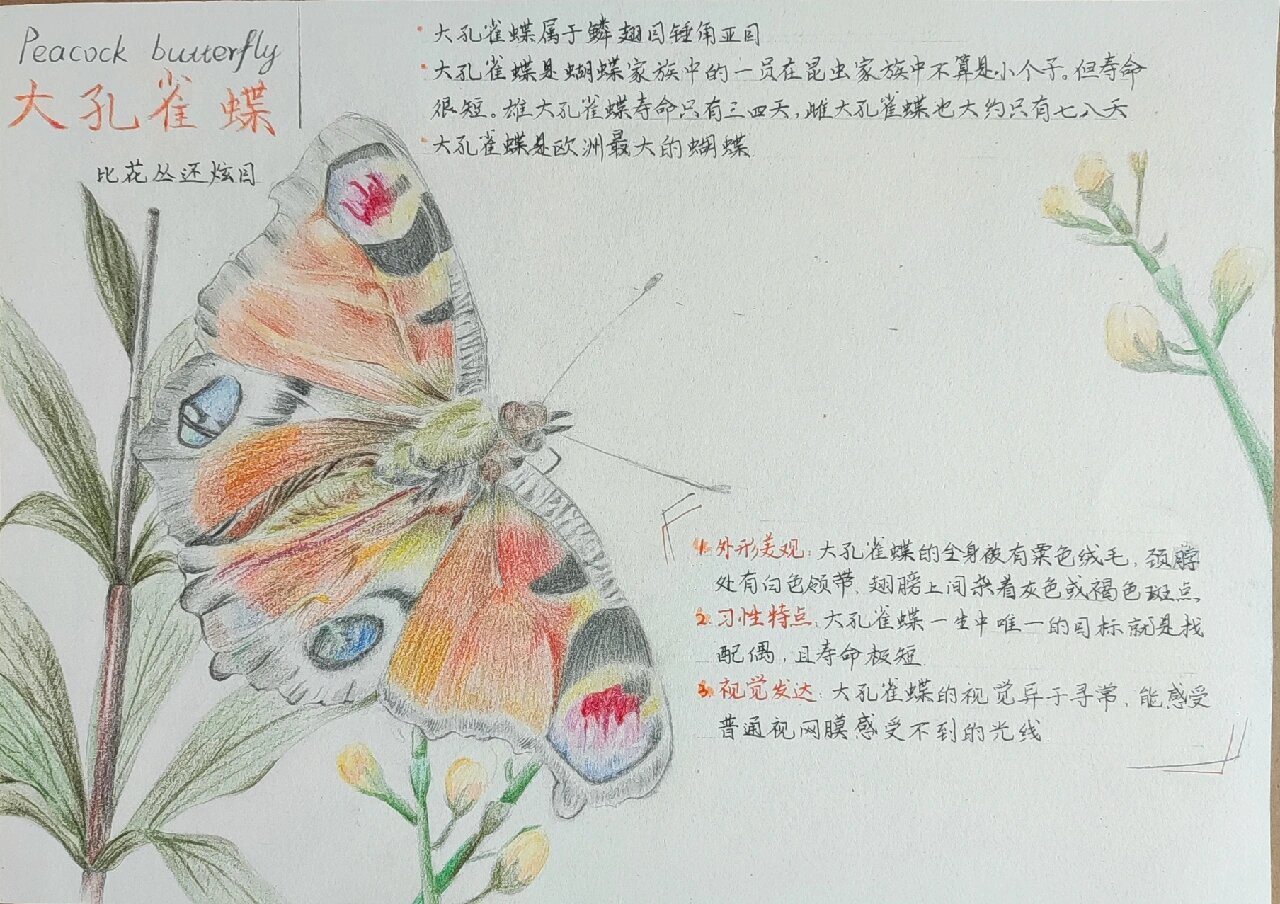 Peacock butterfly
大孔雀蝶
比花丛还炫目
· 大孔雀蝶属于鳞翅目锤角亚目
· 大孔雀蝶是蝴蝶家族中的一员在昆虫家族中不算是小个子。但寿命
很短。雄大孔雀蝶寿命只有三四天,雌大孔雀蝶也大约只有七八天
· 大孔雀蝶是欧洲最大的蝴蝶
1. 外形美观:大孔雀蝶的全身被有栗色绒毛,颈脖
处有白色领带、翅膀上间杂着灰色或褐色斑点
2. 习性特点:大孔雀蝶一生中唯一的目标就是找
配偶,且寿命极短
3. 视觉发达:大孔雀蝶的视觉异于寻常、能感受
普通视网膜感受不到的光线